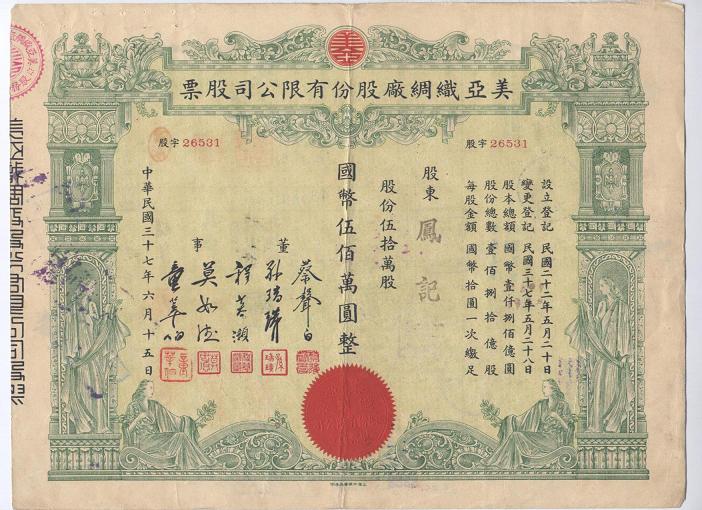 美亞織綢廠股份有限公司股票
股字 26531
股字 26531
設立登記 民國二十二年五月二十日
變更登記 民國三十七年五月二十八日
股本總額 國幣壹仟捌佰億圓
股份總數 壹佰捌拾億股
每股金額 國幣拾圓一次繳足
股東 鳳記
股份伍拾萬股
國幣伍佰萬圓整
董事
蔡聲白
程英瀕
莫如德
童莘伯
中華民國三十七年六月十五日